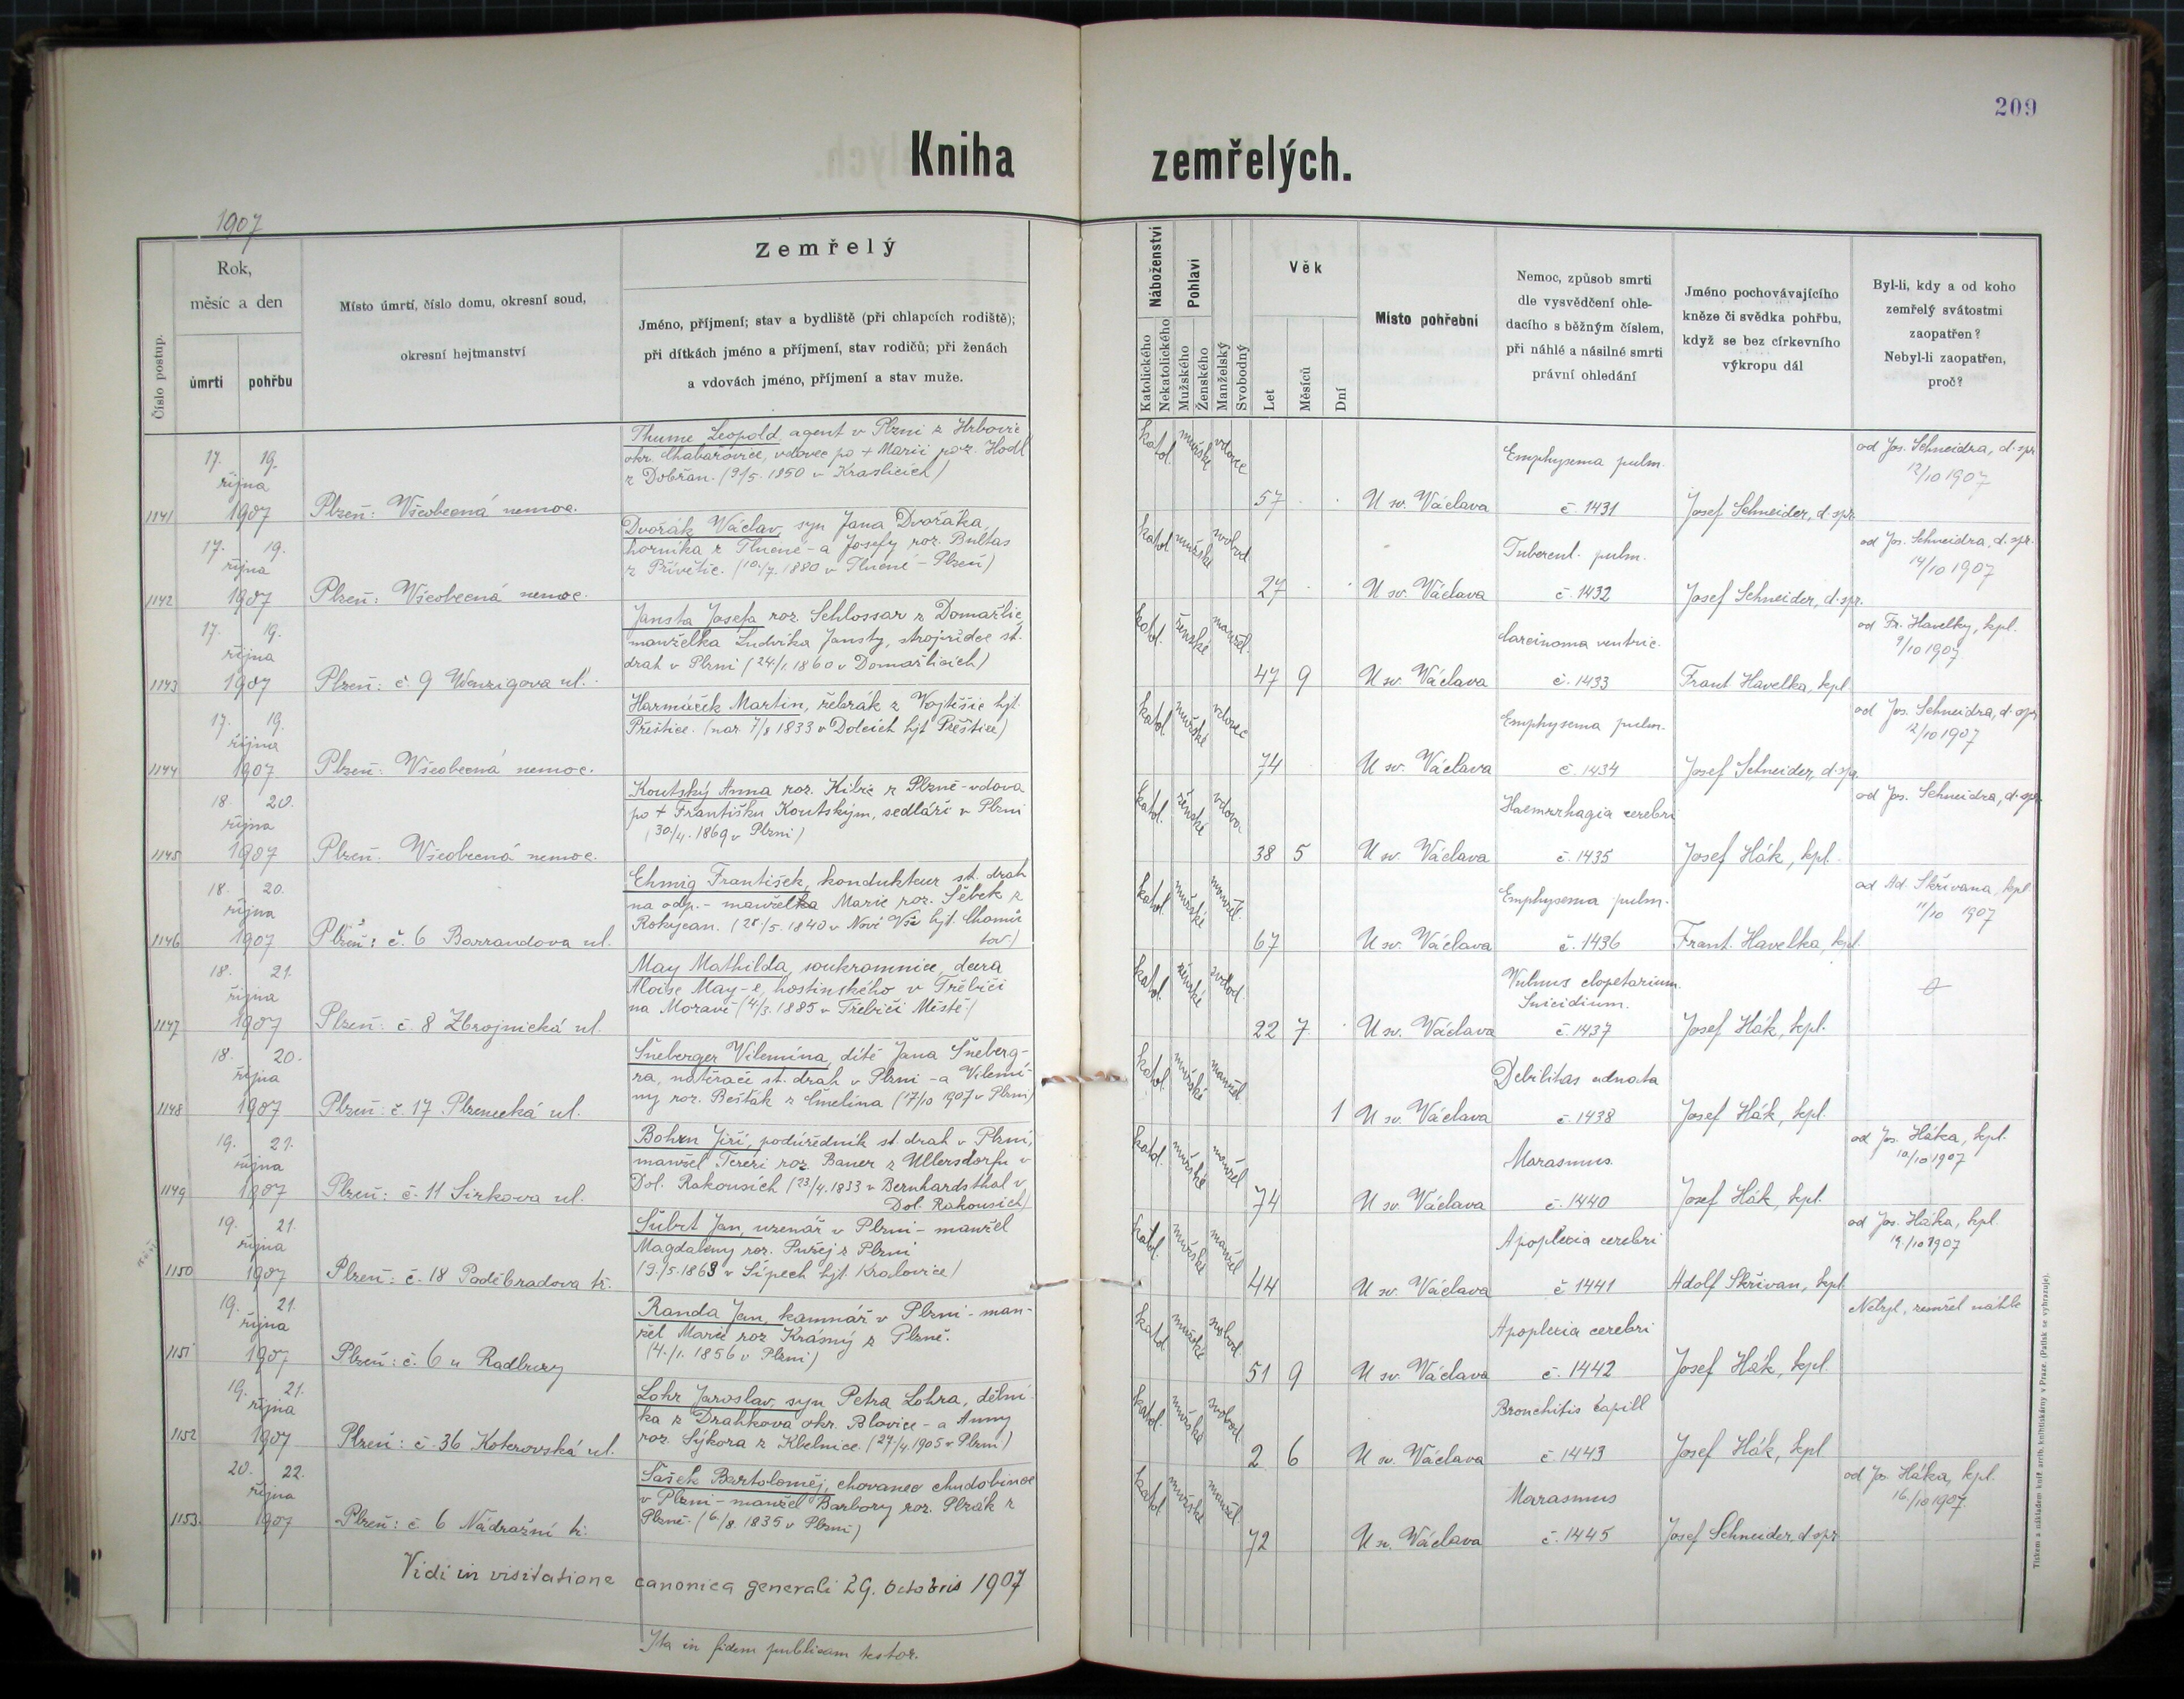 209
Kniha zemřelých.
1907
Číslo postup.
Rok,
měsíc a den
úmrtí
pohřbu
Místo úmrtí, číslo domu, okresní soud,
okresní hejtmanství
Zemřelý
Jméno, příjmení; stav a bydliště (při chlapcích rodiště);
při dítkách jméno a příjmení, stav rodičů; při ženách
a vdovách jméno, příjmení a stav muže.
Náboženství
Katolického
Nekatolického
Pohlaví
Mužského
Ženského
Manželský
Svobodný
Věk
Let
Měsíců
Dní
Místo pohřební
Nemoc, způsob smrti
dle vysvědčení ohle-
dacího s běžným číslem,
při náhlé a násilné smrti
právní ohledání
Jméno pochovávajícího
kněze či svědka pohřbu,
když se bez církevního
výkropu dál
Byl-li, kdy a od koho
zemřelý svátostmi
zaopatřen?
Nebyl-li zaopatřen,
proč?
1141
17. 19.
října
1907
Plzeň: Všeobecná nemoc.
Thume Leopold, agent v Plzni z Hrbovic
okr. Chabařovice, vdovec po + Marii roz. Hodl
z Dobřan. (9/5. 1850 v Kraslicích)
katol. mužské vdovec
57
U sv. Václava
Emphysema pulm.
č. 1431
Josef Schneider, d. spr.
od Jos. Schneidra, d. spr.
12/10 1907
1142
17. 19.
října
1907
Plzeň: Všeobecná nemoc.
Dvořák Václav, syn Jana Dvořáka,
horníka z Tlucné - a Josefy roz. Bultas
z Přívětic. (10./7. 1880 v Tlucné - Plzeň)
katol. mužské svobod.
27
U sv. Václava
Tubercul. pulm.
č. 1432
Josef Schneider, d. spr.
od Jos. Schneidra, d. spr.
14/10 1907
1143
17. 19.
října
1907
Plzeň: č. 9 Wenzigova ul.
Jansta Josefa roz. Schlossar z Domažlic
manželka Ludvíka Jansty, strojvůdce st.
drah v Plzni (24/1. 1860 v Domažlicích)
katol. ženské manžel.
47 9
U sv. Václava
Carcinoma ventric.
č. 1433
Frant. Havelka, kpl.
od Fr. Havelky, kpl.
9/10 1907
1144
17. 19.
října
1907
Plzeň: Všeobecná nemoc.
Harmáček Martin, žebrák z Vojtěšic hjt.
Přeštice. (nar. 7/8 1833 v Dolcích hjt Přeštice)
katol. mužské vdovec
74
U sv. Václava
Emphysema pulm.
č. 1434
Josef Schneider, d. spr.
od Jos. Schneidra, d. spr.
12/10 1907
1145
18. 20.
října
1907
Plzeň: Všeobecná nemoc.
Koutský Anna roz. Kibic z Plzně - vdova
po + Františku Koutským, sedláři v Plzni
(30/4. 1869 v Plzni)
katol. ženské vdova
38 5
U sv. Václava
Haemrrhagia cerebri
č. 1435
Josef Hák, kpl.
od Jos. Schneidra, d. spr.
1146
18. 20.
října
1907
Plzeň: č. 6 Barrandova ul.
Ehmig František, kondukteur st. drah
na odp. - manželka Marie roz. Šebek z
Rokycan. (28/5. 1840 v Nové Vsi hjt. Chomů
tov)
katol. mužské manžel.
67
U sv. Václava
Emphysema pulm.
č. 1436
Frant. Havelka, kpl.
od Ad. Skřivana, kpl
11/10 1907
1147
18. 21.
října
1907
Plzeň: č. 8 Zbrojnická ul.
May Mathilda, soukromnice, dcera
Aloise May-e, hostinského v Třebíči
na Moravě (4/3. 1885 v Třebíči Městě)
katol. ženské svobod.
22 7
U sv. Václava
Vulnus clopetarium
Suicidium.
č. 1437
Josef Hák, kpl.
1148
18. 20.
října
1907
Plzeň: č. 17 Plzenecká ul.
Šneberger Vilemína, dítě Jana Šneberg-
ra, natěrače st. drah v Plzni - a Vilemí-
ny roz. Bešťák z Čmelína (17/10 1907 v Plzni)
katol. mužské manžel.
1
U sv. Václava
Debilitas adnata
č. 1438
Josef Hák, kpl.
1149
19. 21.
října
1907
Plzeň: č. 11 Sirkova ul.
Bohrn Jiří, podúředník st. drah v Plzni,
manžel Terezi roz. Bauer z Ullersdorfu v
Dol. Rakousích (23/4. 1833 v Bernhardsthal v
Dol. Rakousích)
katol. mužské manžel
74
U sv. Václava
Marasmus.
č. 1440
Josef Hák, kpl.
od Jos. Háka, kpl.
10/10 1907
1150
19. 21.
října
1907
Plzeň: č. 18 Poděbradova tř.
Šubrt Jan, uzenář v Plzni - manžel
Magdaleny roz. Pužej z Plzni
(9./5. 1863 v Sípech hjt. Kralovice)
katol. mužské manžel
44
U sv. Václava
Apoplexia cerebri
č 1441
Adolf Skřivan, kpl.
od Jos. Háka, kpl.
19./10 1907
1151
19. 21.
října
1907
Plzeň: č. 6 u Radbuzy
Randa Jan, kamnář v Plzni - man-
žel Marie roz Krásný z Plzně.
(4./1. 1856 v Plzni)
katol. mužské svobod.
51 9
U sv. Václava
Apoplexia cerebri
č. 1442
Josef Hák, kpl.
Nebyl, zemřel náhle
1152
19. 21.
října
1907
Plzeň: č. 36 Koterovská ul.
Lohr Jaroslav, syn Petra Lohra, dělní
ka z Drahkova okr. Blovice - a Anny
roz. Sýkora z Kbelnice. (27/4. 1905 v Plzni)
katol. mužské svobod.
2 6
U sv. Václava
Bronchitis capill
č. 1443
Josef Hák, kpl
1153.
20. 22.
října
1907
Plzeň: č 6 Nádražní tř.
Šašek Bartoloměj, chovanec chudobince
v Plzni - manžel Barbory roz. Plzák z
Plzně. (6./8. 1835 v Plzni)
katol. mužské manžel.
72
U sv. Václava
Marasmus
č. 1445
Josef Schneider, d. spr
od Jos. Háka, kpl.
16./10 1907.
Vidi in visitatione canonica generali 29. octobris 1907
Ita in fidem publicam testor.
Tiskem a nákladem kníž. arcib. knihtiskárny v Praze. (Patisk se vyhrazuje).